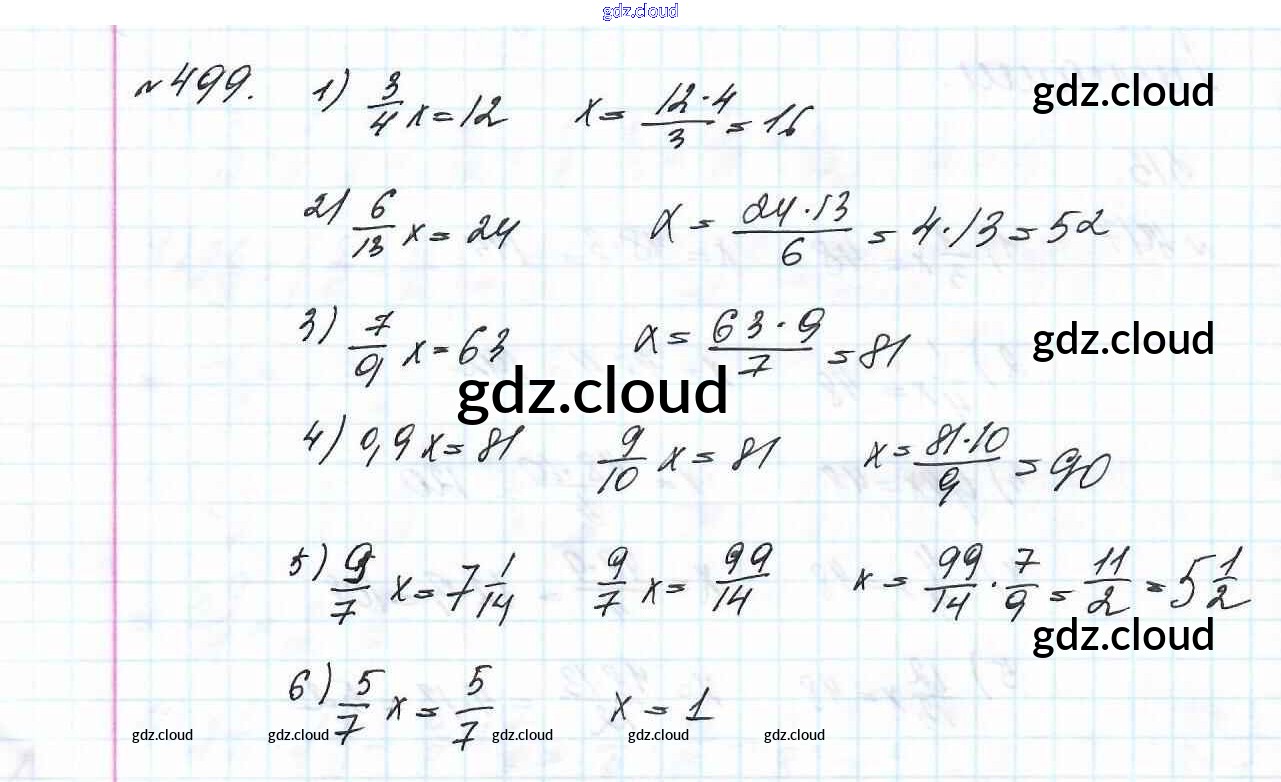 gdz.cloud
№499. 1) 3/4 x = 12 x = 12·4/3 = 16 gdz.cloud
2) 6/13 x = 24 x = 24·13/6 = 4·13 = 52
3) 7/9 x = 63 x = 63·9/7 = 81 gdz.cloud
gdz.cloud
4) 0,9 x = 81 9/10 x = 81 x = 81·10/9 = 90
5) 9/7 x = 7 1/14 9/7 x = 99/14 x = 99/14 · 7/9 = 11/2 = 5 1/2
gdz.cloud
6) 5/7 x = 5/7 x = 1
gdz.cloud gdz.cloud gdz.cloud gdz.cloud gdz.cloud